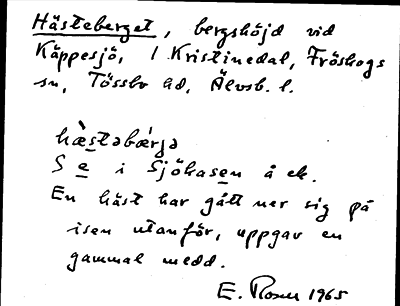 Hästeberget, bergshöjd vid
Käppesjö, / Kristinedal, Fröskogs
sn, Tössbo hd, Älvsb. l.
hæ̀stəbæ̀rjə
S e i Sjöhasen å ek.
En häst har gått ner sig på
isen utanför, uppgav en
gammal medd.
E. Rosm 1965